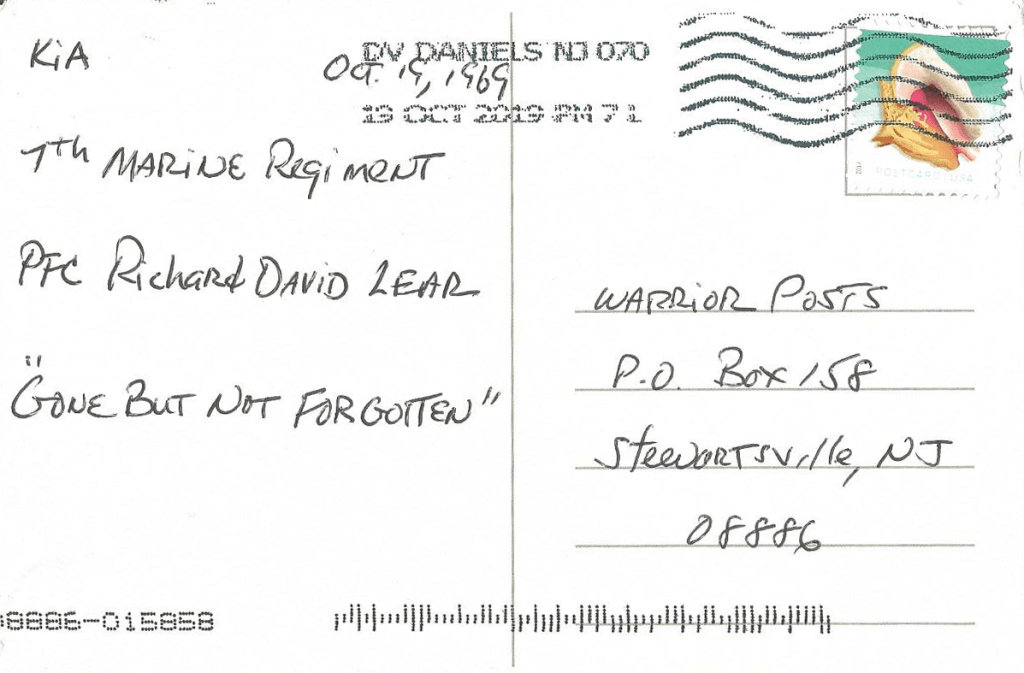 KiA
Oct. 19, 1969
DV DANIELS NJ 070
19 OCT 2019 PM 7 L
7th MARINE Regiment
PFC Richard DAVID LEAR
"GONE BUT NOT FORGOTTEN"
POSTCARD USA
WARRIOR POSTS
P.O. Box 158
Stewartsville, NJ
08886
8886-015858